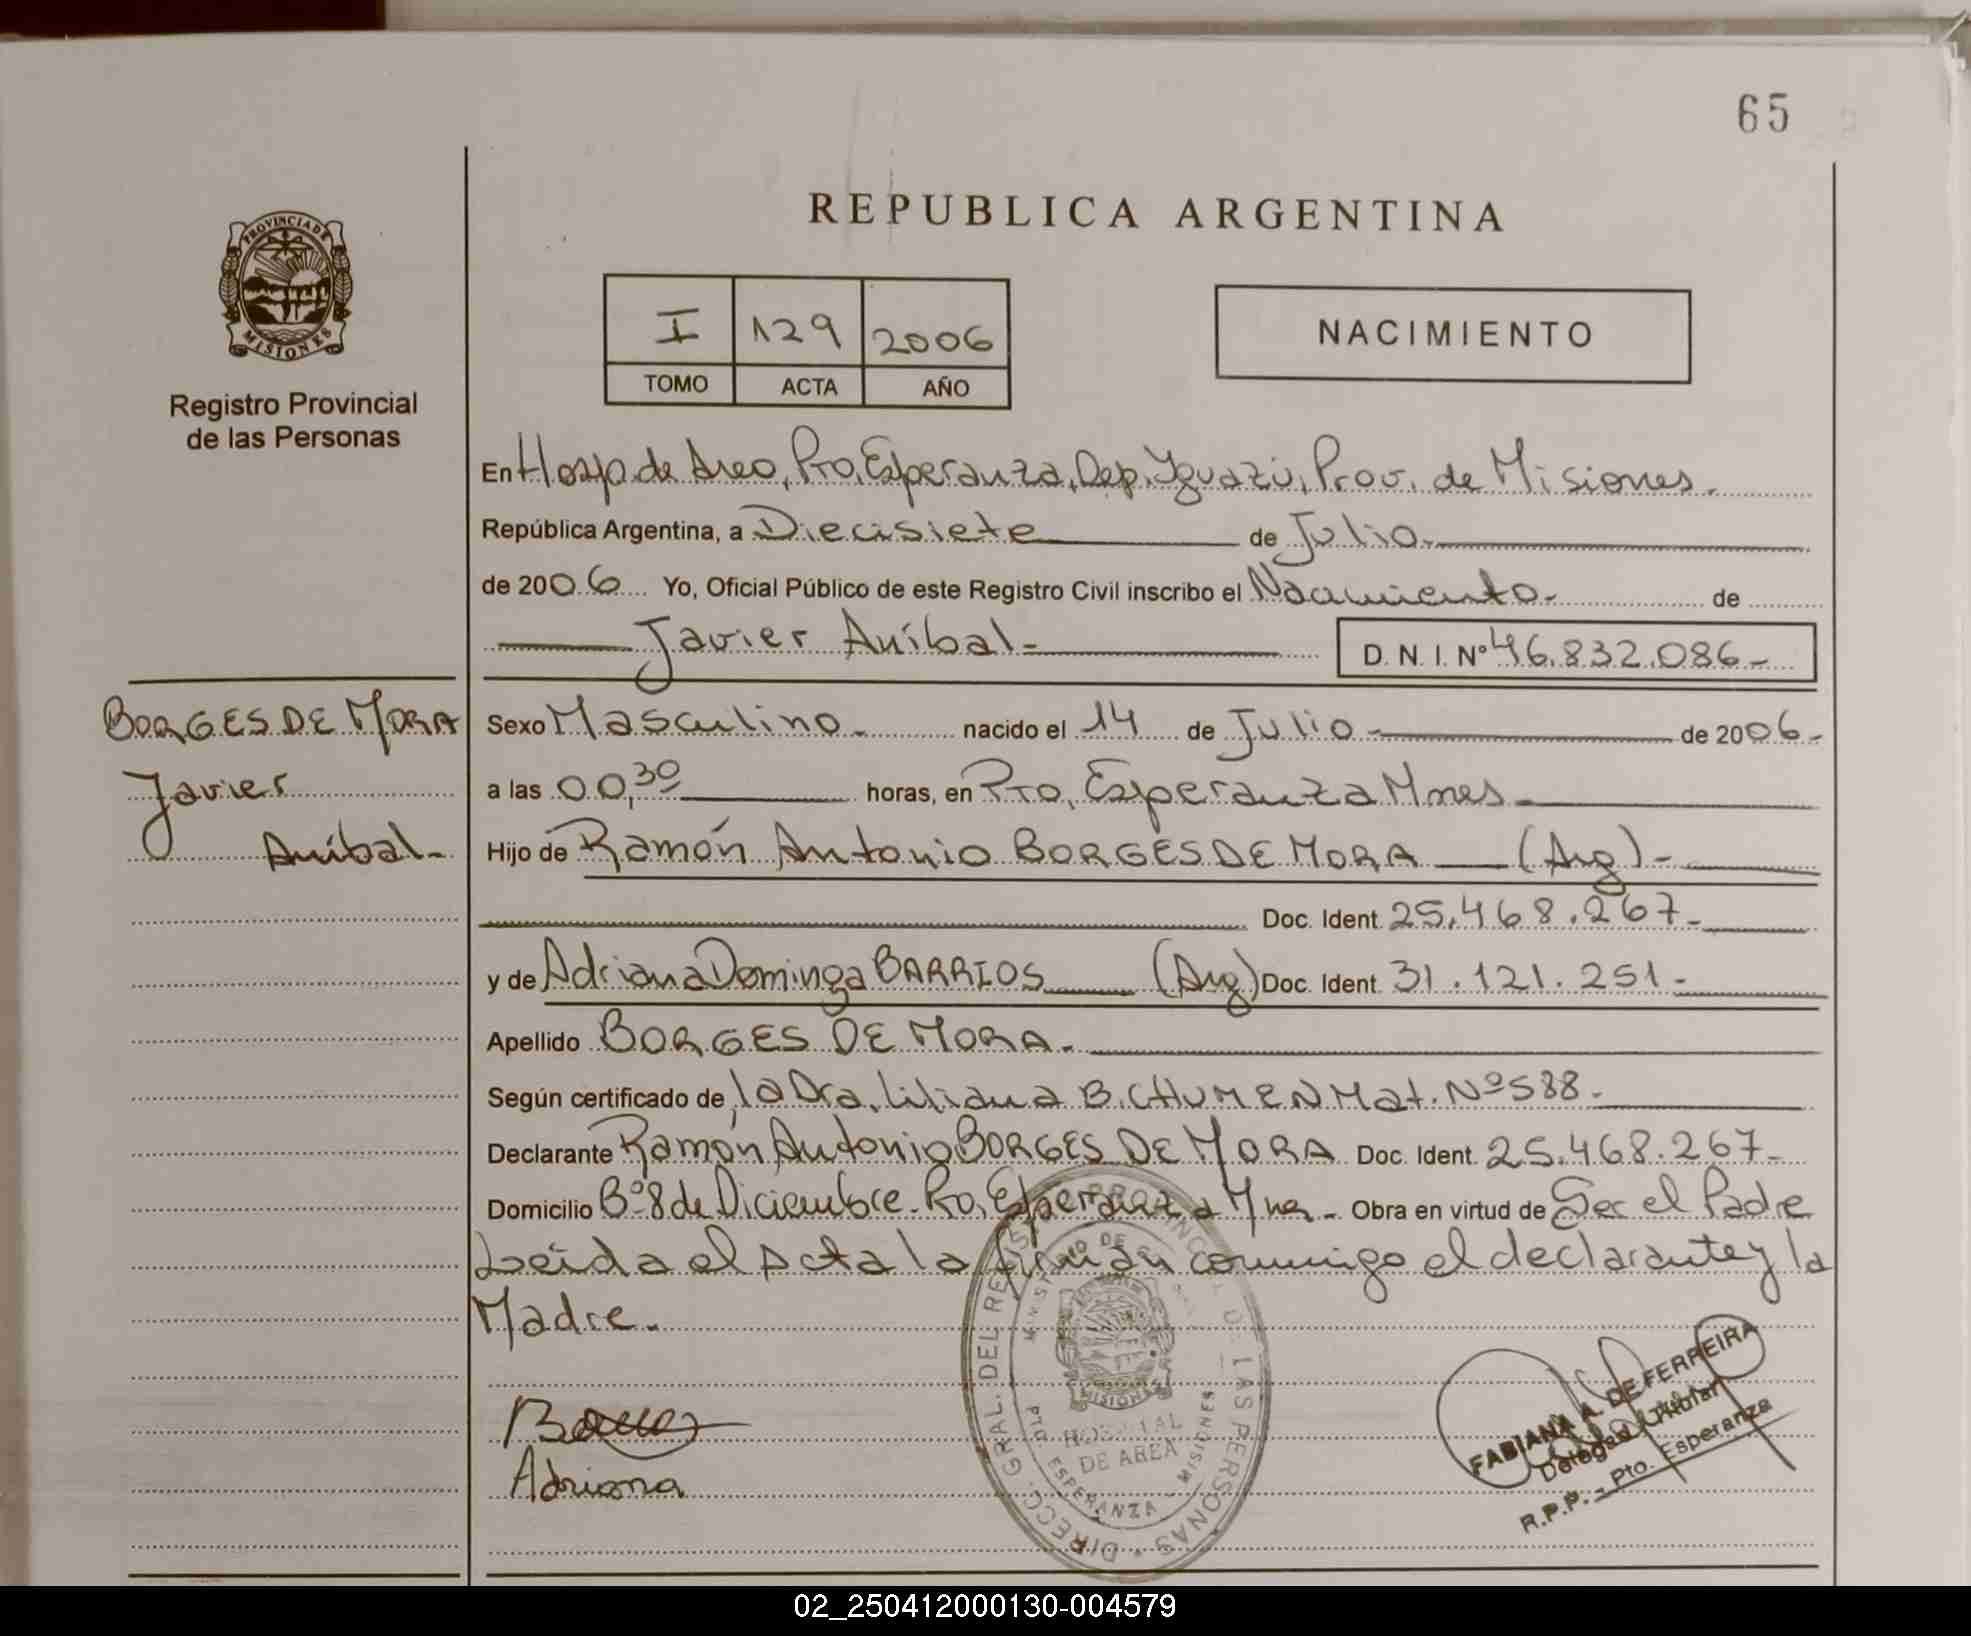 65
REPUBLICA ARGENTINA
PROVINCIA DE
MISIONES
Registro Provincial
de las Personas
I 129 2006
TOMO ACTA AÑO
NACIMIENTO
En Hosp. de Area, Pto, Esperanza, Dep. Yguazú, Prov. de Misiones.
República Argentina, a Diecisiete de Julio.
de 2006 Yo, Oficial Público de este Registro Civil inscribo el Nacimiento. de
Javier Aníbal.
D. N. I. Nº 46.832.086.-
BORGES DE MORA
Javier
Aníbal.
Sexo Masculino. nacido el 14 de Julio de 2006.
a las 00,30 horas, en Pto, Esperanza Mnes.
Hijo de Ramón Antonio BORGES DE MORA (Arg).
Doc. Ident. 25.468.267.
y de Adriana Dominga BARRIOS (Arg) Doc. Ident. 31.121.251.
Apellido BORGES DE MORA.
Según certificado de la Dra. Liliana B. CHUMEN Mat. Nº 588.
Declarante Ramón Antonio BORGES DE MORA Doc. Ident. 25.468.267.
Domicilio Bº 8 de Diciembre. Pto, Esperanza Mnes. Obra en virtud de Ser el Padre
Leída el Acta la firman conmigo el declarante y la
Madre.
DIRECC. GRAL. DEL REGISTRO PROVINCIAL DE LAS PERSONAS
MINISTERIO DE
MISIONES
HOSPITAL
DE AREA
PTO. ESPERANZA - MISIONES
Adriana
FABIANA A. DE FERREIRA
Delegada Titular
R.P.P. - Pto. Esperanza
02_250412000130-004579